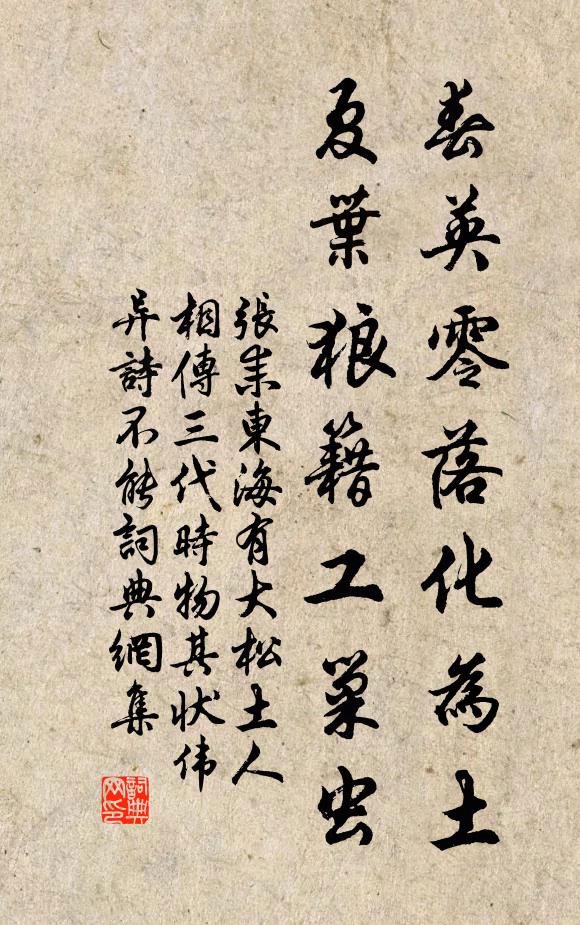 春英零落化為土
夏葉狼籍工巢虫
張耒東海有大松土人
相傳三代時物其状伟
异詩不能詞典網集
詞典
网印